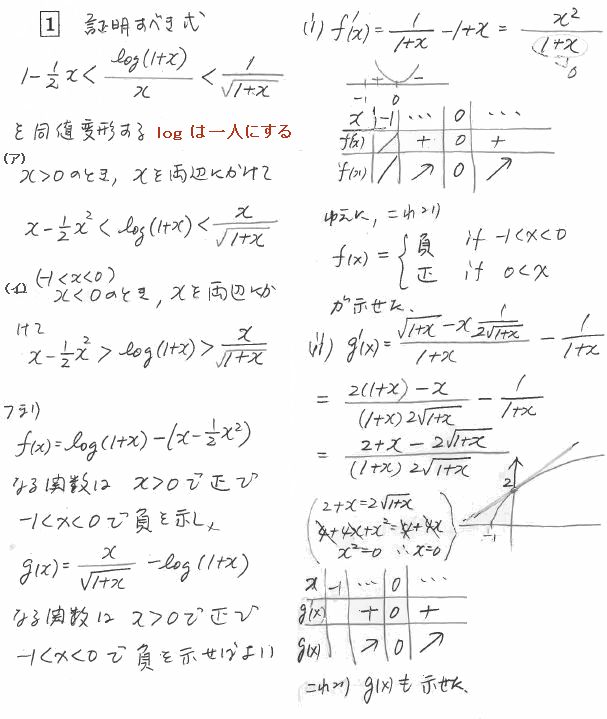 1 証明すべき式
1-\frac{1}{2}x<\frac{log(1+x)}{x}<\frac{1}{\sqrt{1+x}}
を同値変形する logは一人にする
(ア)
x>0のとき, xを両辺にかけて
x-\frac{1}{2}x^2<log(1+x)<\frac{x}{\sqrt{1+x}}
(イ) (-1<x<0)
x<0のとき, xを両辺にか
けて
x-\frac{1}{2}x^2>log(1+x)>\frac{x}{\sqrt{1+x}}
つまり
f(x)=log(1+x)-(x-\frac{1}{2}x^2)
なる関数は x>0で正で
-1<x<0で負を示し、
g(x)=\frac{x}{\sqrt{1+x}}-log(1+x)
なる関数は x>0で正で
-1<x<0で負を示せばよい
(i) f'(x)=\frac{1}{1+x}-1+x=\frac{x^2}{1+x}
>0
+ -
-1 0
x -1 … 0 …
f'(x) + 0 +
f(x) ↗ 0 ↗
ゆえに, これより
f(x)={負 if -1<x<0
正 if 0<x
が示せた.
(ii) g'(x)=\frac{\sqrt{1+x}-x\frac{1}{2\sqrt{1+x}}}{1+x}-\frac{1}{1+x}
=\frac{2(1+x)-x}{(1+x)2\sqrt{1+x}}-\frac{1}{1+x}
=\frac{2+x-2\sqrt{1+x}}{(1+x)2\sqrt{1+x}}
(2+x=2\sqrt{1+x}
4+4x+x^2=4+4x
x^2=0 ∴x=0)
2
-1
x -1 … 0 …
g'(x) + 0 +
g(x) ↗ 0 ↗
これより g(x)も示せた.